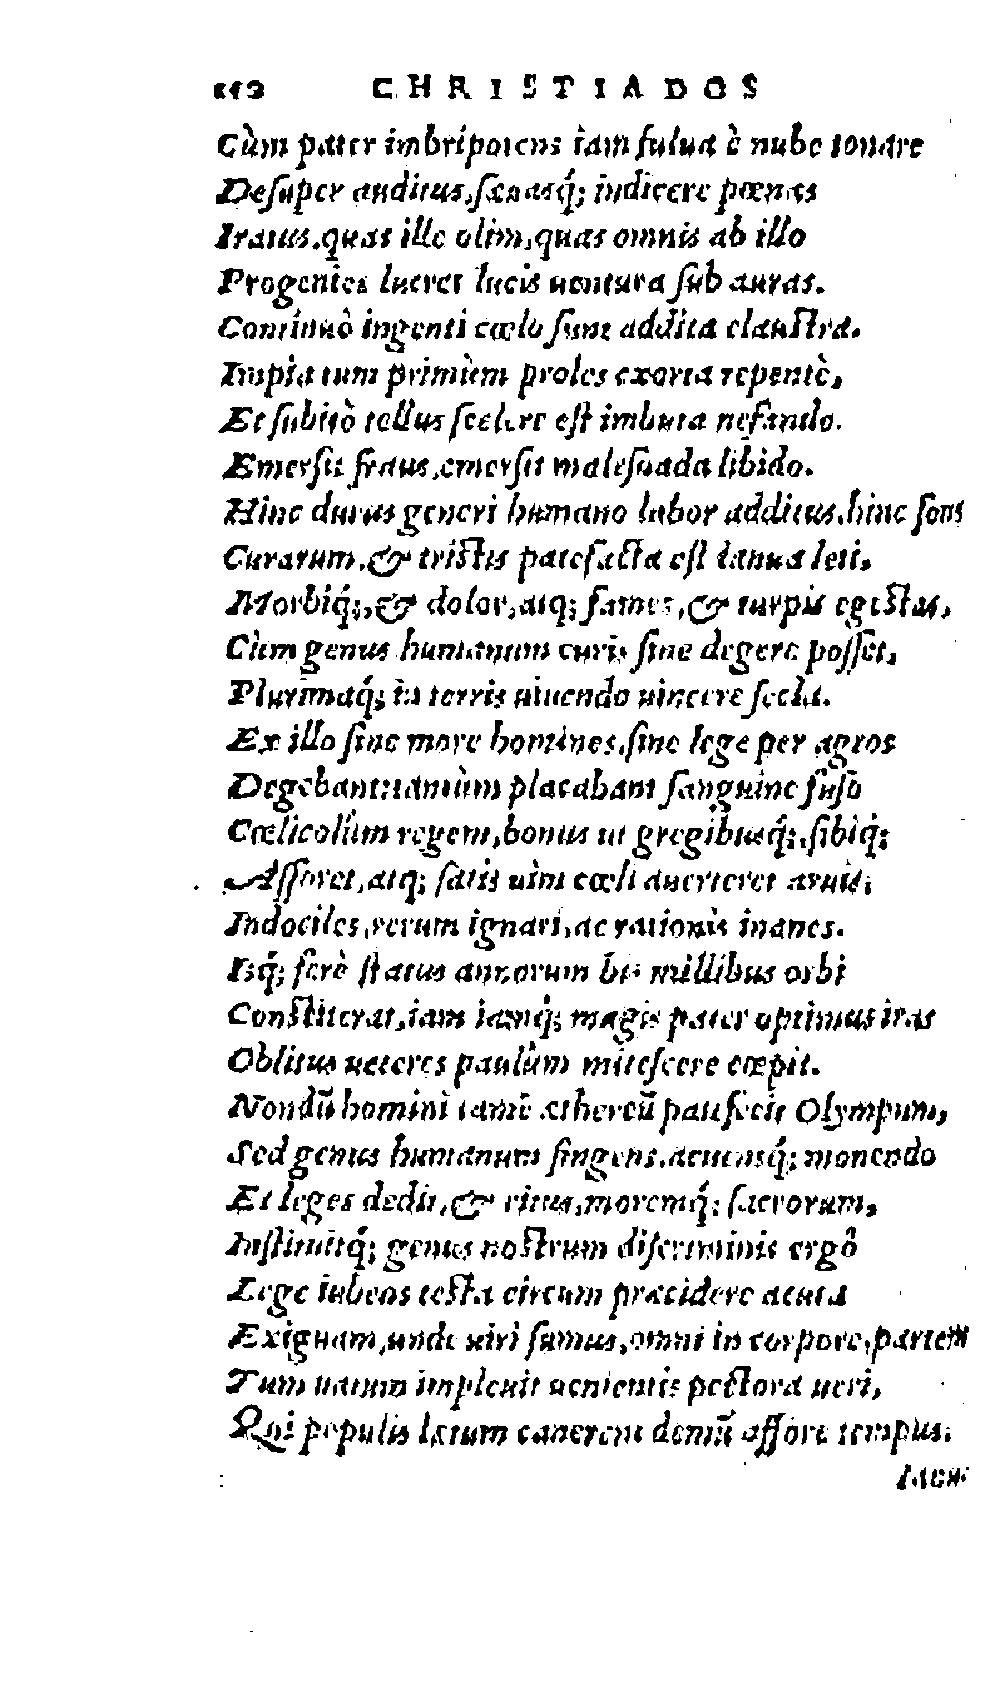 CHRISTIADOS
Cùm pater imbripotens iam fulua è nube tonare
Desuper auditus, sæuasq́; indicere pœnas
Iratus, quas ille olim, quas omnis ab illo
Progenies lueret lucis uentura sub auras.
Continuò ingenti cœlo sunt addita claustra.
Impia tum primùm proles exorta repentè,
Et subitò tellus scelere est imbuta nefando.
Emersit fraus, emersit malesuada libido.
Hinc durus generi humano labor additus, hinc fons
Curarum, & tristis patefacta est ianua leti,
Morbiq́;, & dolor, atq; fames, & turpis egestas,
Cùm genus humanum curis sine degere posset,
Plurimaq́; in terris uiuendo uincere secla.
Ex illo sine more homines, sine lege per agros
Degebant: tantùm placabant sanguine fuso
Cœlicolûm regem, bonus ut gregibusq́;, sibiq́;
Afforet, atq; satis uim cœli auerteret aruis;
Indociles, rerum ignari, ac rationis inanes.
Isq́; ferè status annorum bis millibus orbi
Constiterat, iam iamq́; magis pater optimus iras
Oblitus ueteres paulùm mitescere cœpit.
Nondũ homini tamẽ æthereũ patefecit Olympum,
Sed genus humanum fingens, acuensq́; monendo
Et leges dedit, & ritus, moremq́; sacrorum,
Instituitq́; genus nostrum discriminis ergô
Lege iubens testa circum præcidere acuta
Exiguam, unde uiri sumus, omni in corpore, partem
Tum uatum impleuit uenientis pectora ueri,
Qui populis lætum canerent demũ affore tempus,